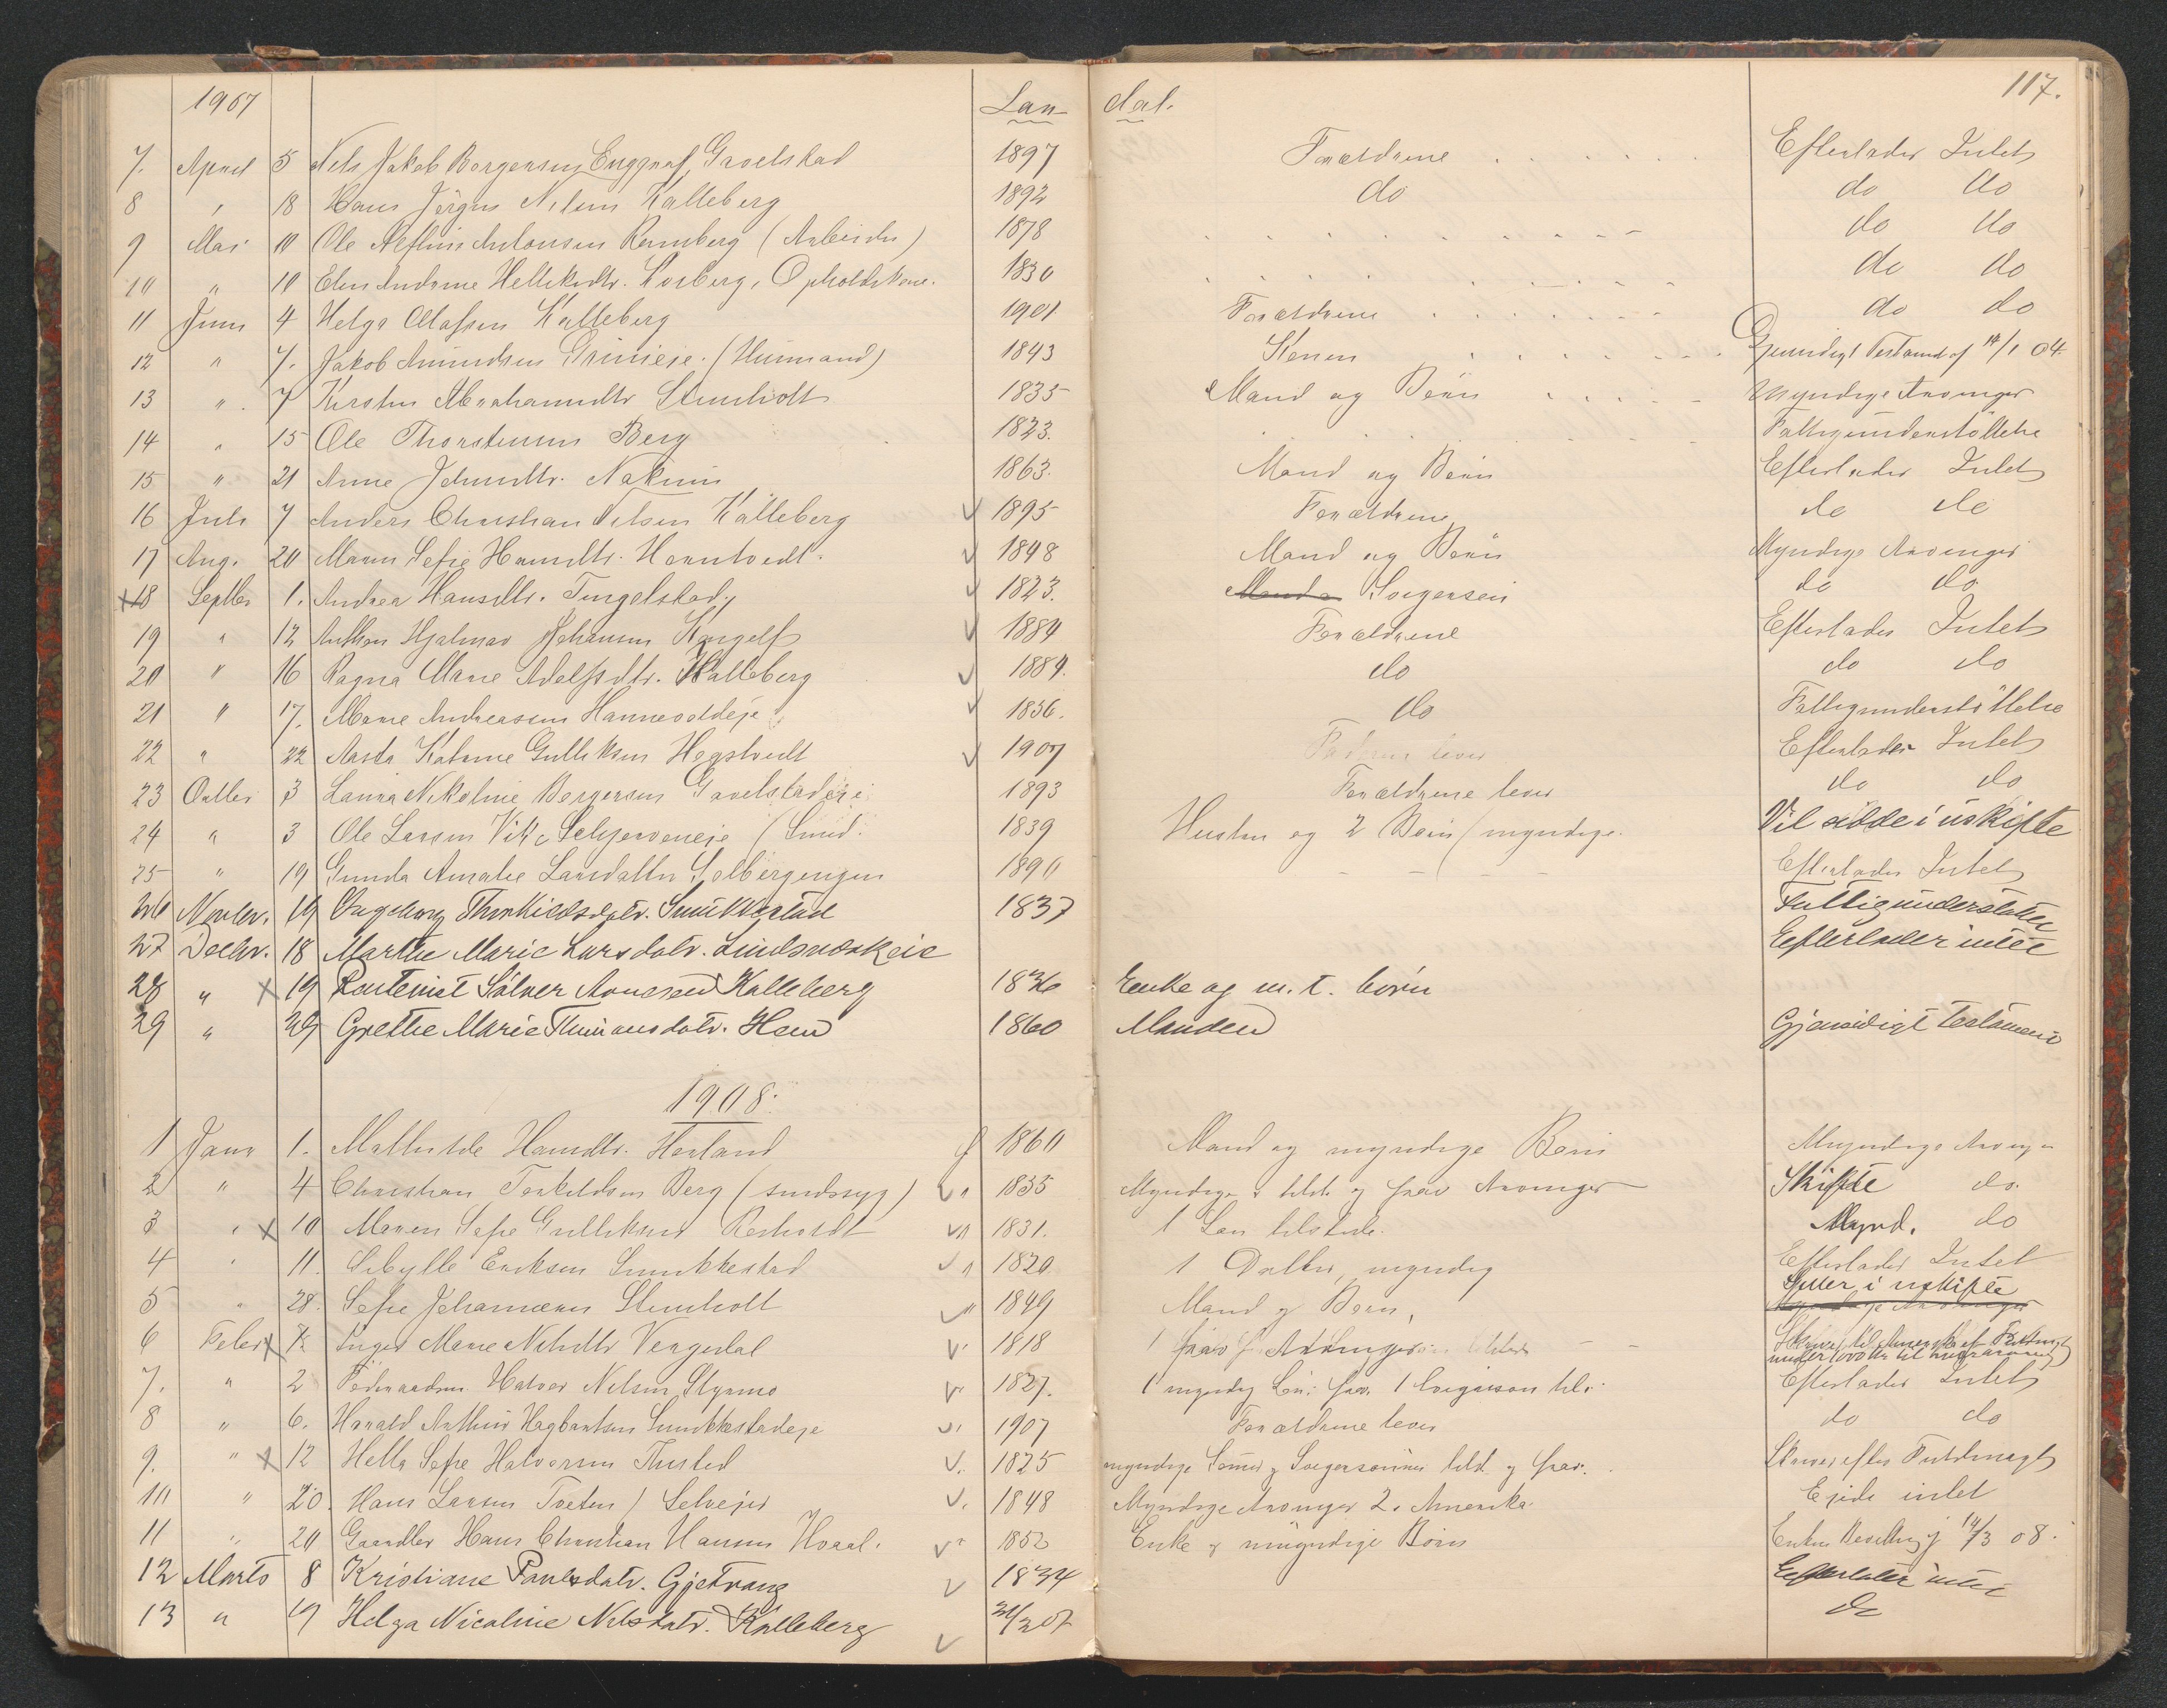 1907 Lan dal. 117.
7. April 5 Nels Jakob Borgersen Enggraf, Gavelstad 1897 Forældrene Efterlader Intet
8 " 18 Hans Jörgen Nilsen Kalleberg 1892 do do do
9 Mai 10 Ole Antonsen Ramberg (Arbeider) 1878 do do
10 " 10 Elen Andrine Helliksdtr. Kosberg, Opholdskone. 1830 do do
11 Juni 4 Helga Olafsen Kalleberg 1901 Forældrene do do
12 " 7. Jakob Amundsen (Huusmand) 1843 Konen Gjensidigt Testament af 14/1 04.
13 " 7 Kirsten Abrahamsdtr Stenholt 1835 Mand og Börn Myndige Arvinger
14 " 15 Ole Thorstensen Berg 1823. Fattigunderstöttelse
15 " 21 Anne Johnsdtr. Nakim 1863. Mand og Börn Efterlader Intet
16 Juli 7 Anders Christian Nilsen Kalleberg 1895 Forældrene do do
17 Aug. 20 Maren Sofie Hansdtr. Horntvedt. 1848 Mand og Börn Myndige Arvinger
18 Septbr 1. Andrea Hansdtr. Tingelstad 1823. Svigersön do do
19 " 12 Anthon Hjalmar Johansen 1884 Forældrene Efterlader Intet
20 " 16 Ragna Marie Adolfsdtr. Kalleberg 1884. do do do
21 " 17. Marie Andreasen Hannevoldeje 1856. do Fattigunderstöttelse
22 " 22 Aasta Katrine Gulliksen Hegstvedt 1907 Faderen lever Efterlader Intet
23 Octbr 3 Laura Nikoline Borgersen Gavelstadeje 1893 Forældrene lever do do
24 " 3 Ole Larsen Vik, (Smed. 1839 Hustru og 2 Börn (myndige. Vil sidde i uskifte
25 " 19 Gunda Amalie Larsdatter Solbergengen 1890 Efterlader Intet
26 Novbr. 19 Ingeborg Thorkildsdatr. Smukkestad 1837 Fattigunderstöttet
27 Decbr. 18 Marthe Marie Larsdatr. Efterlader intet
28 " x 19 Rentenist Sölver Kalleberg 1836 Enke og m. t. börn
29 " 29 Grethe Marie Thimansdatr. Hem 1860 Manden Gjensidigt Testament
1908.
1 Janr 1. Mathilde Hansdtr. Havland 1860 Mand og myndige Börn Myndige Arvinger
2 " 4 Christian Torkildsen Berg (sindssyg) 1835 Myndige tilst. og frav Arvinger Skifte do.
3 " x 10 Maren Sofie Gulliksen 1831. 1 Sön tilstede. Mynd. do
4 " 11. Sibylle Eriksen Smukkestad 1820 1 Datter, myndig Efterlader Intet
5 " 28. Sofie Johannesen Stenholt 1849 Mand og Börn, Sitter i uskifte
6 Febr x 1. Inger Marie Nilsdtr Vergedal 1818 1 frav. Arvinger
7. " 2 Halvor Nilsen Styrmo 1827. 1 myndig Sön frav. 1 Svigersön tilst. Efterlader Intet
8 " 6. Harald Arthur Hagbartsen Smukkestadeje 1907 Forældrene lever do do
9. " x 12 Hella Sofie Halvorsen Thisted 1825 myndige Sönner og Svigersönner tilst. og frav. Skriver efter Fuldmagt
10 " 20. Hans Larsen Tveten / Selvejer 1848 Myndige Arvinger 2 i Amerika Ejede intet
11 " 20 Gaardbr Hans Christian Hansen Hvaal. 1852 Enke og umyndige Börn Enkens Bevilling af 14/3 08.
12 Marts 8 Kristiane Paulsdatr. Gjetrang 1834 Efterlater intet
13 " 19 Helga Nicoline Nilsdatr. Kalleberg 21/2 07 do